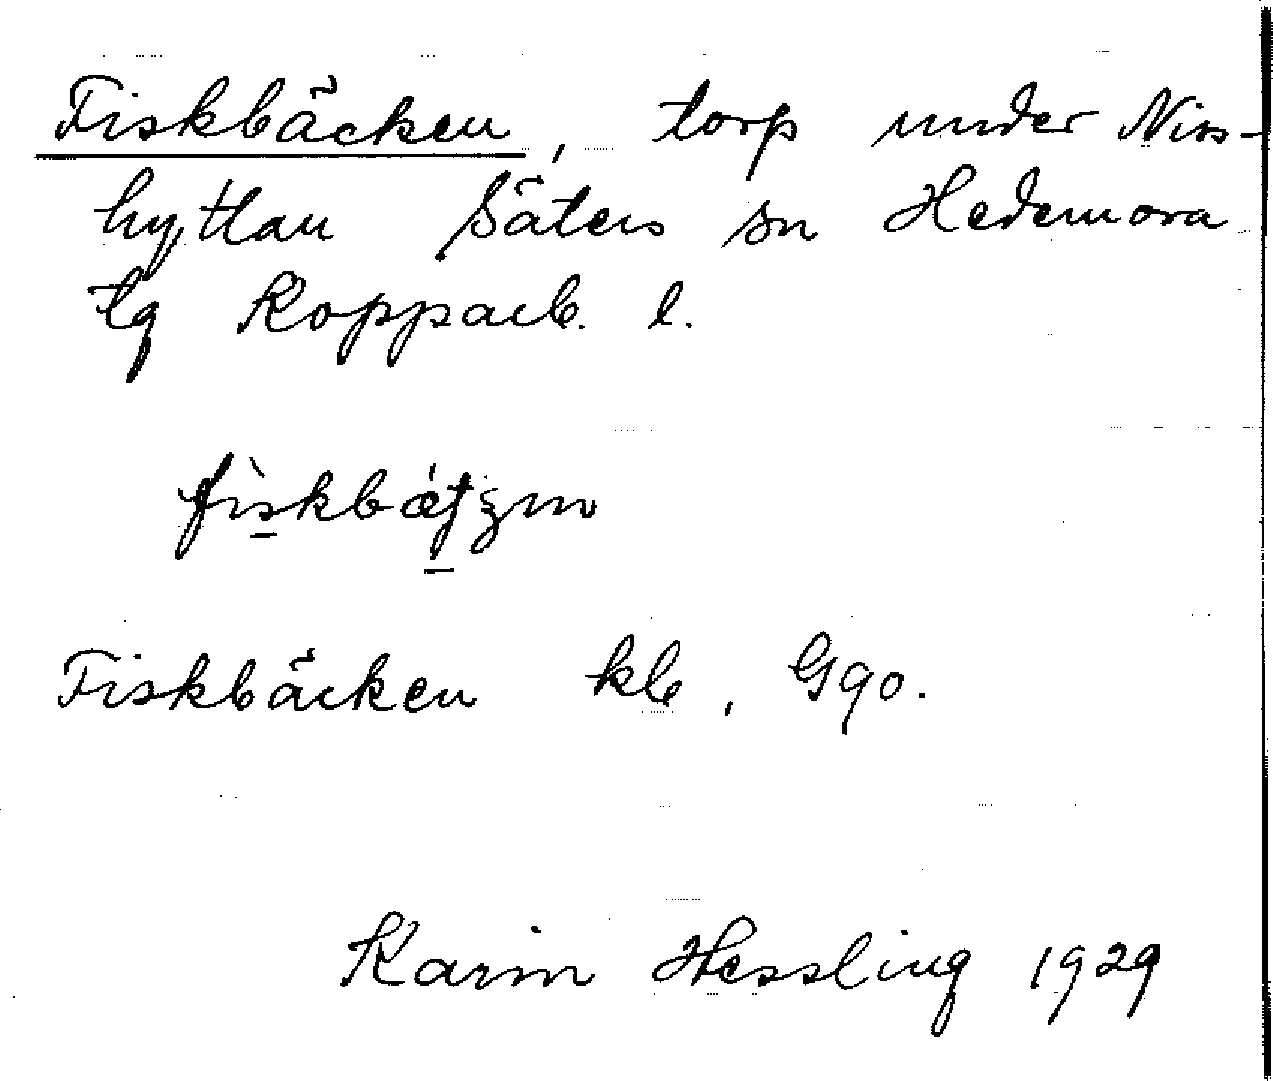 Fiskbäcken, torp under Niss-
hyttan Säters sn Hedemora
tg Kopparb. l.
Fiskbäcken kb, Ggo.
Karin Hessling 1929